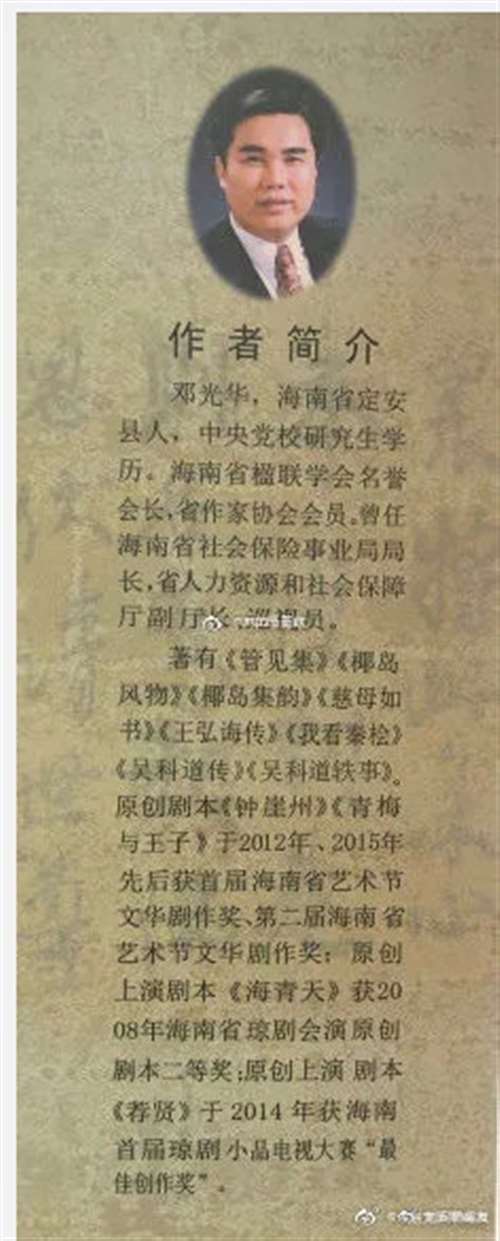 作者简介
邓光华，海南省定安
县人，中央党校研究生学
历。海南省楹联学会名誉
会长，省作家协会会员。曾任
海南省社会保险事业局局
长，省人力资源和社会保障
厅副厅长、巡视员。
著有《管见集》《椰岛
风物》《椰岛集韵》《慈母如
书》《王弘诲传》《我看秦桧》
《吴科道传》《吴科道轶事》。
原创剧本《钟崖州》《青梅
与王子》于2012年、2015年
先后获首届海南省艺术节
文华剧作奖、第二届海南省
艺术节文华剧作奖；原创
上演剧本《海青天》获20
08年海南省琼剧会演原创
剧本二等奖；原创上演 剧本
《荐贤》于2014年获海南
首届琼剧小品电视大赛“最
佳创作奖”。